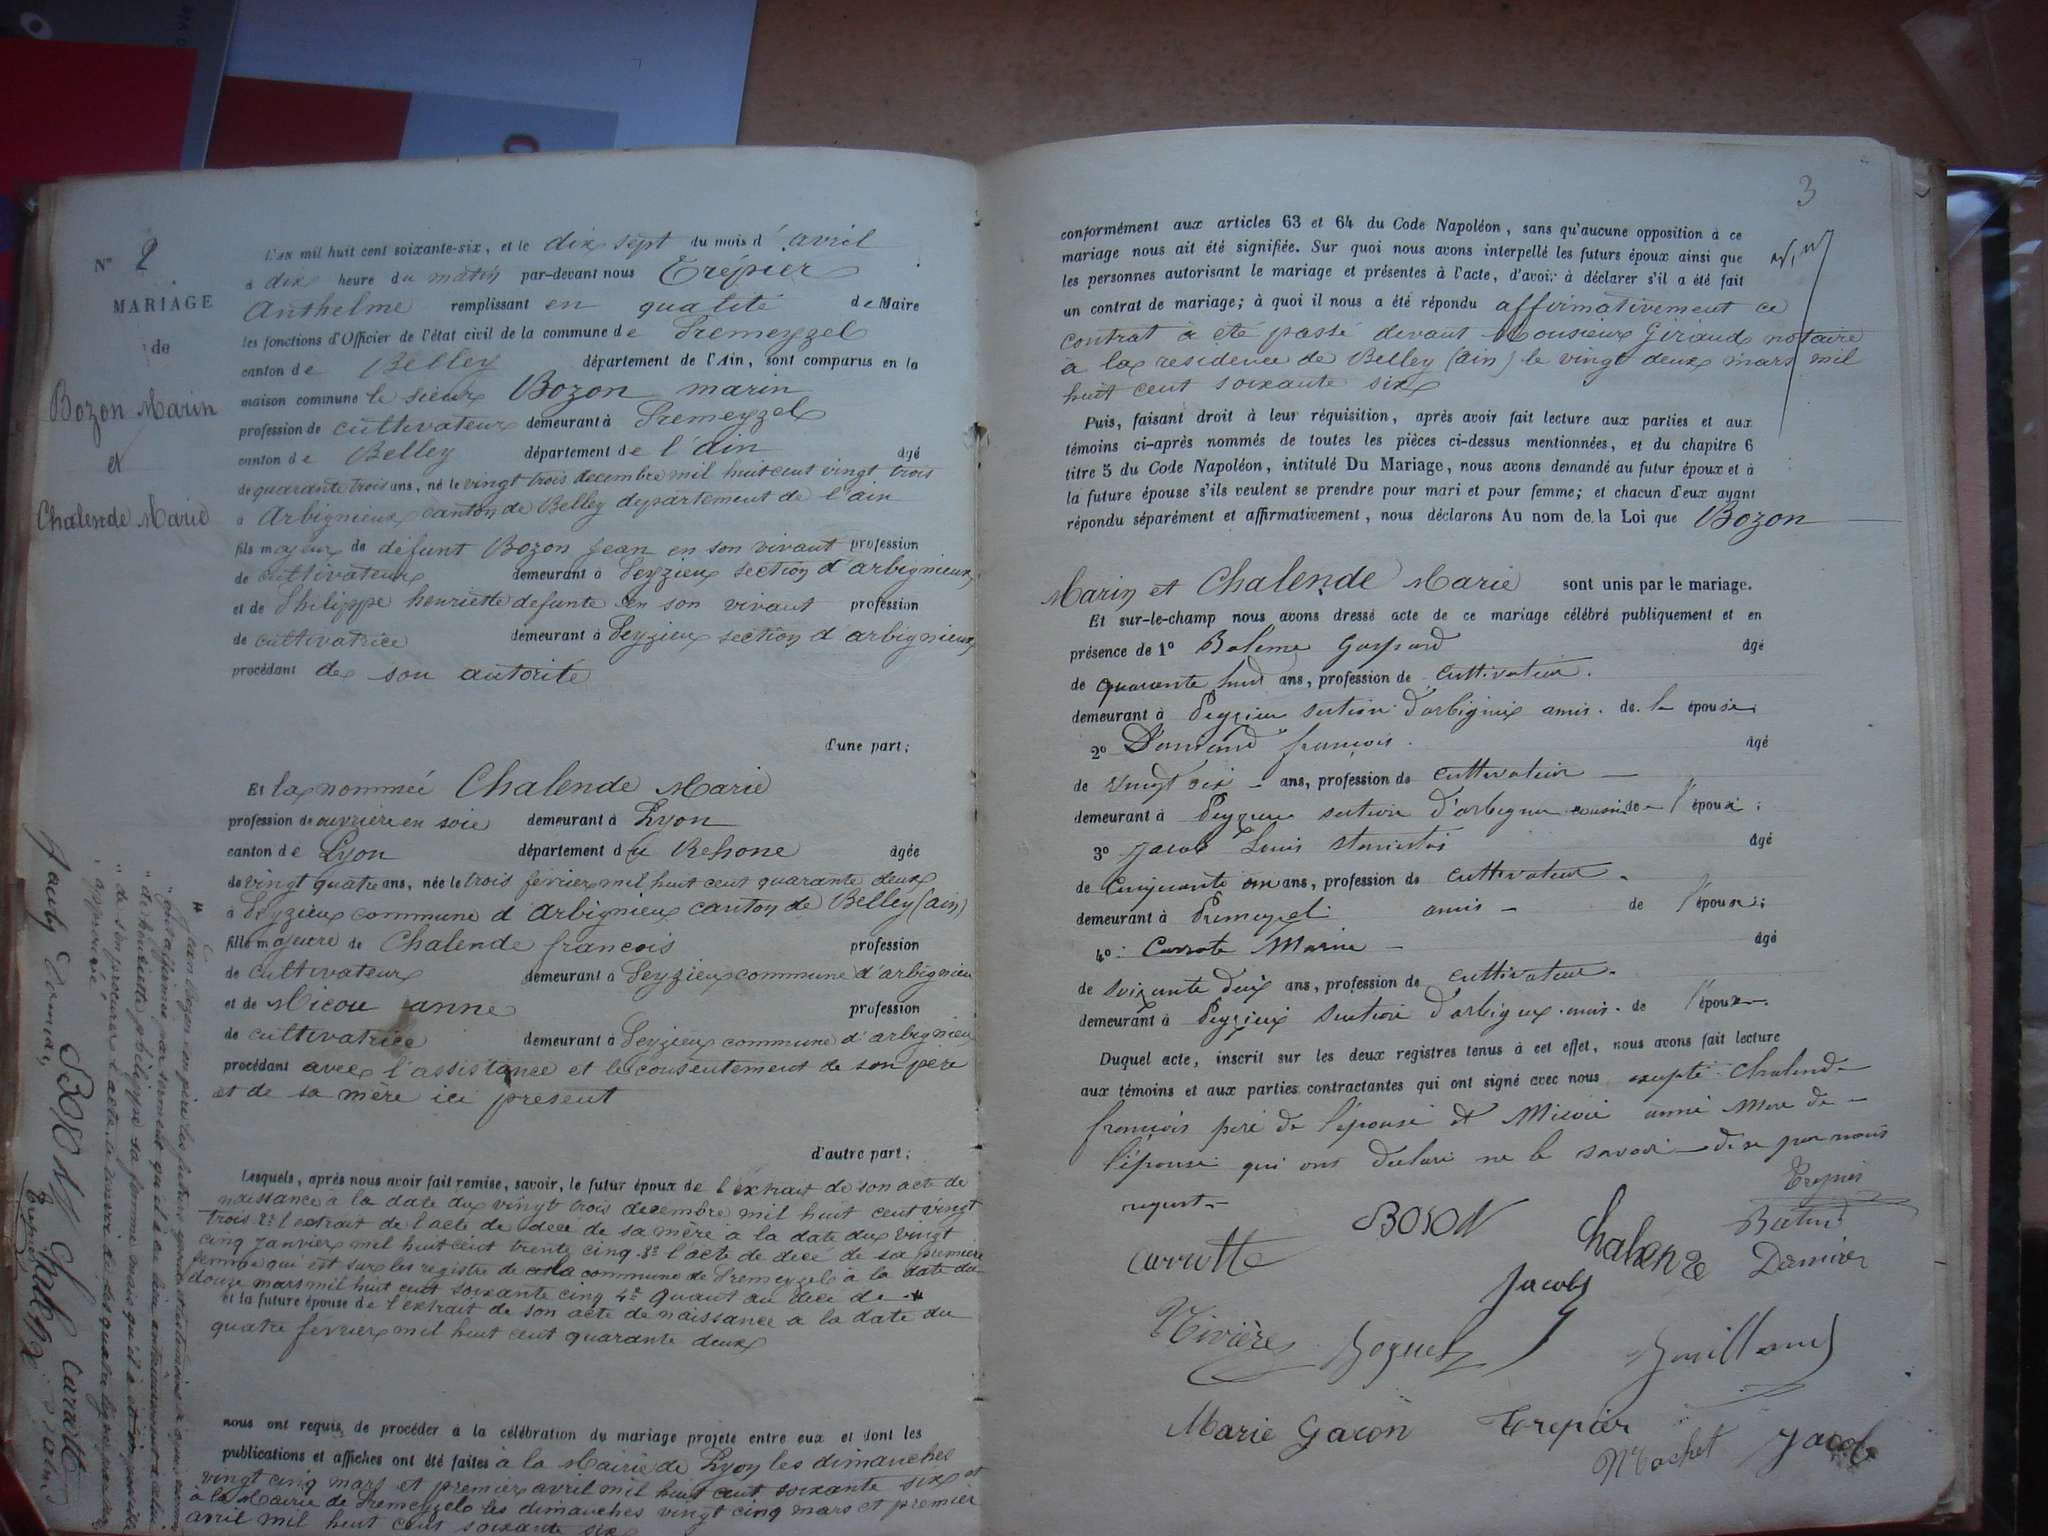 N° 2
MARIAGE
de
Bozon Marin
et
Chalende Marie
L'AN mil huit cent soixante-six, et le dix sept du mois d'avril
à dix heure du matin par-devant nous Trépier
Anthelme remplissant en qualité de Maire
les fonctions d'Officier de l'état civil de la commune de Premeyzel
canton de Belley département de l'Ain, sont comparus en la
maison commune le sieur Bozon marin
profession de cultivateur demeurant à Premeyzel
canton de Belley département de l'ain âgé
de quarante trois ans, né le vingt trois decembre mil huit cent vingt trois
à Arbignieux canton de Belley departement de l'ain
fils majeur de défunt Bozon Jean en son vivant profession
de cultivateur demeurant à Peyzieux section d'arbignieux
et de Philippe henriette defunte en son vivant profession
de cultivatrice demeurant à Peyzieux section d'arbignieux
procédant de son autorité
d'une part;
Et la nommée Chalende Marie
profession de ouvrière en soie demeurant à Lyon
canton de Lyon département du Rehone âgée
de vingt quatre ans, née le trois février mil huit cent quarante deux
à Peyzieux commune d'Arbignieux canton de Belley (ain)
fille majeure de Chalende françois profession
de cultivateur demeurant à Peyzieux commune d'arbignieu
et de Micou anne profession
de cultivatrice demeurant à Peyzieux commune d'arbignieu
procédant avec l'assistance et le consentement de son père
et de sa mère ici présent
d'autre part;
Lesquels, après nous avoir fait remise, savoir, le futur époux de l'extrait de son acte de
naissance a la date du vingt trois decembre mil huit cent vingt
trois 2° l'extrait de l'acte de decé de sa mère à la date du vingt
cinq janvier mil huit cent trente cinq 3° l'acte de decé de sa première
femme qui est sur les registre de la commune de Premeyzel à la date du
douze mars mil huit cent soixante cinq 4° Quant au decé de *
et la future épouse de l'extrait de son acte de naissance a la date du
quatre février mil huit cent quarante deux
nous ont requis de procéder à la célébration du mariage projeté entre eux et dont les
publications et affiches ont été faites à la Mairie de Lyon les dimanches
vingt cinq mars et premier avril mil huit cent soixante six et
à la Mairie de Premeyzel les dimanches vingt cinq mars et premier
avril mil huit cent soixante six
* Jean Bozon son père les futurs
de henriette philippe sa femme mais qu'il
approuvé
Jacob
BOZON Chalende Carrotte
Trepier
3
conformément aux articles 63 et 64 du Code Napoléon, sans qu'aucune opposition à ce
mariage nous ait été signifiée. Sur quoi nous avons interpellé les futurs époux ainsi que
les personnes autorisant le mariage et présentes à l'acte, d'avoir à déclarer s'il a été fait
un contrat de mariage; à quoi il nous a été répondu affirmativement ce
contrat à été passé devant Monsieur Giraud notaire
à la residence de Belley (ain) le vingt deux mars mil
huit cent soixante six
Puis, faisant droit à leur réquisition, après avoir fait lecture aux parties et aux
témoins ci-après nommés de toutes les pièces ci-dessus mentionnées, et du chapitre 6
titre 5 du Code Napoléon, intitulé Du Mariage, nous avons demandé au futur époux et à
la future épouse s'ils veulent se prendre pour mari et pour femme; et chacun d'eux ayant
répondu séparément et affirmativement, nous déclarons Au nom de la Loi que Bozon
Marin et Chalende Marie sont unis par le mariage.
Et sur-le-champ nous avons dressé acte de ce mariage célébré publiquement et en
présence de 1° Gaspard âgé
de quarante ans, profession de cultivateur.
demeurant à Peyzieu section d'arbignieux amis de l'épouse
2° françois âgé
de vingt six ans, profession de cultivateur
demeurant à Peyzieu section d'arbignieu cousin de l'épouse;
3° Jacob Louis âgé
de Cinquante ans, profession de cultivateur
demeurant à Premeyzel amis de l'épouse;
4° Carrote Marin âgé
de soixante deux ans, profession de cultivateur
demeurant à Peyzieux section d'arbignieux amis de l'époux
Duquel acte, inscrit sur les deux registres tenus à cet effet, nous avons fait lecture
aux témoins et aux parties contractantes qui ont signé avec nous excepté Chalende
françois père de l'épouse et Micou anne Mere de
l'épouse qui ont declaré ne le savoir de ce par nous
requert
Trepier
BOZON
Carrotte Chalende
Jacob
Rivière Boguet Bouilland
Marie Gacon Trepier
Mochet Jacob